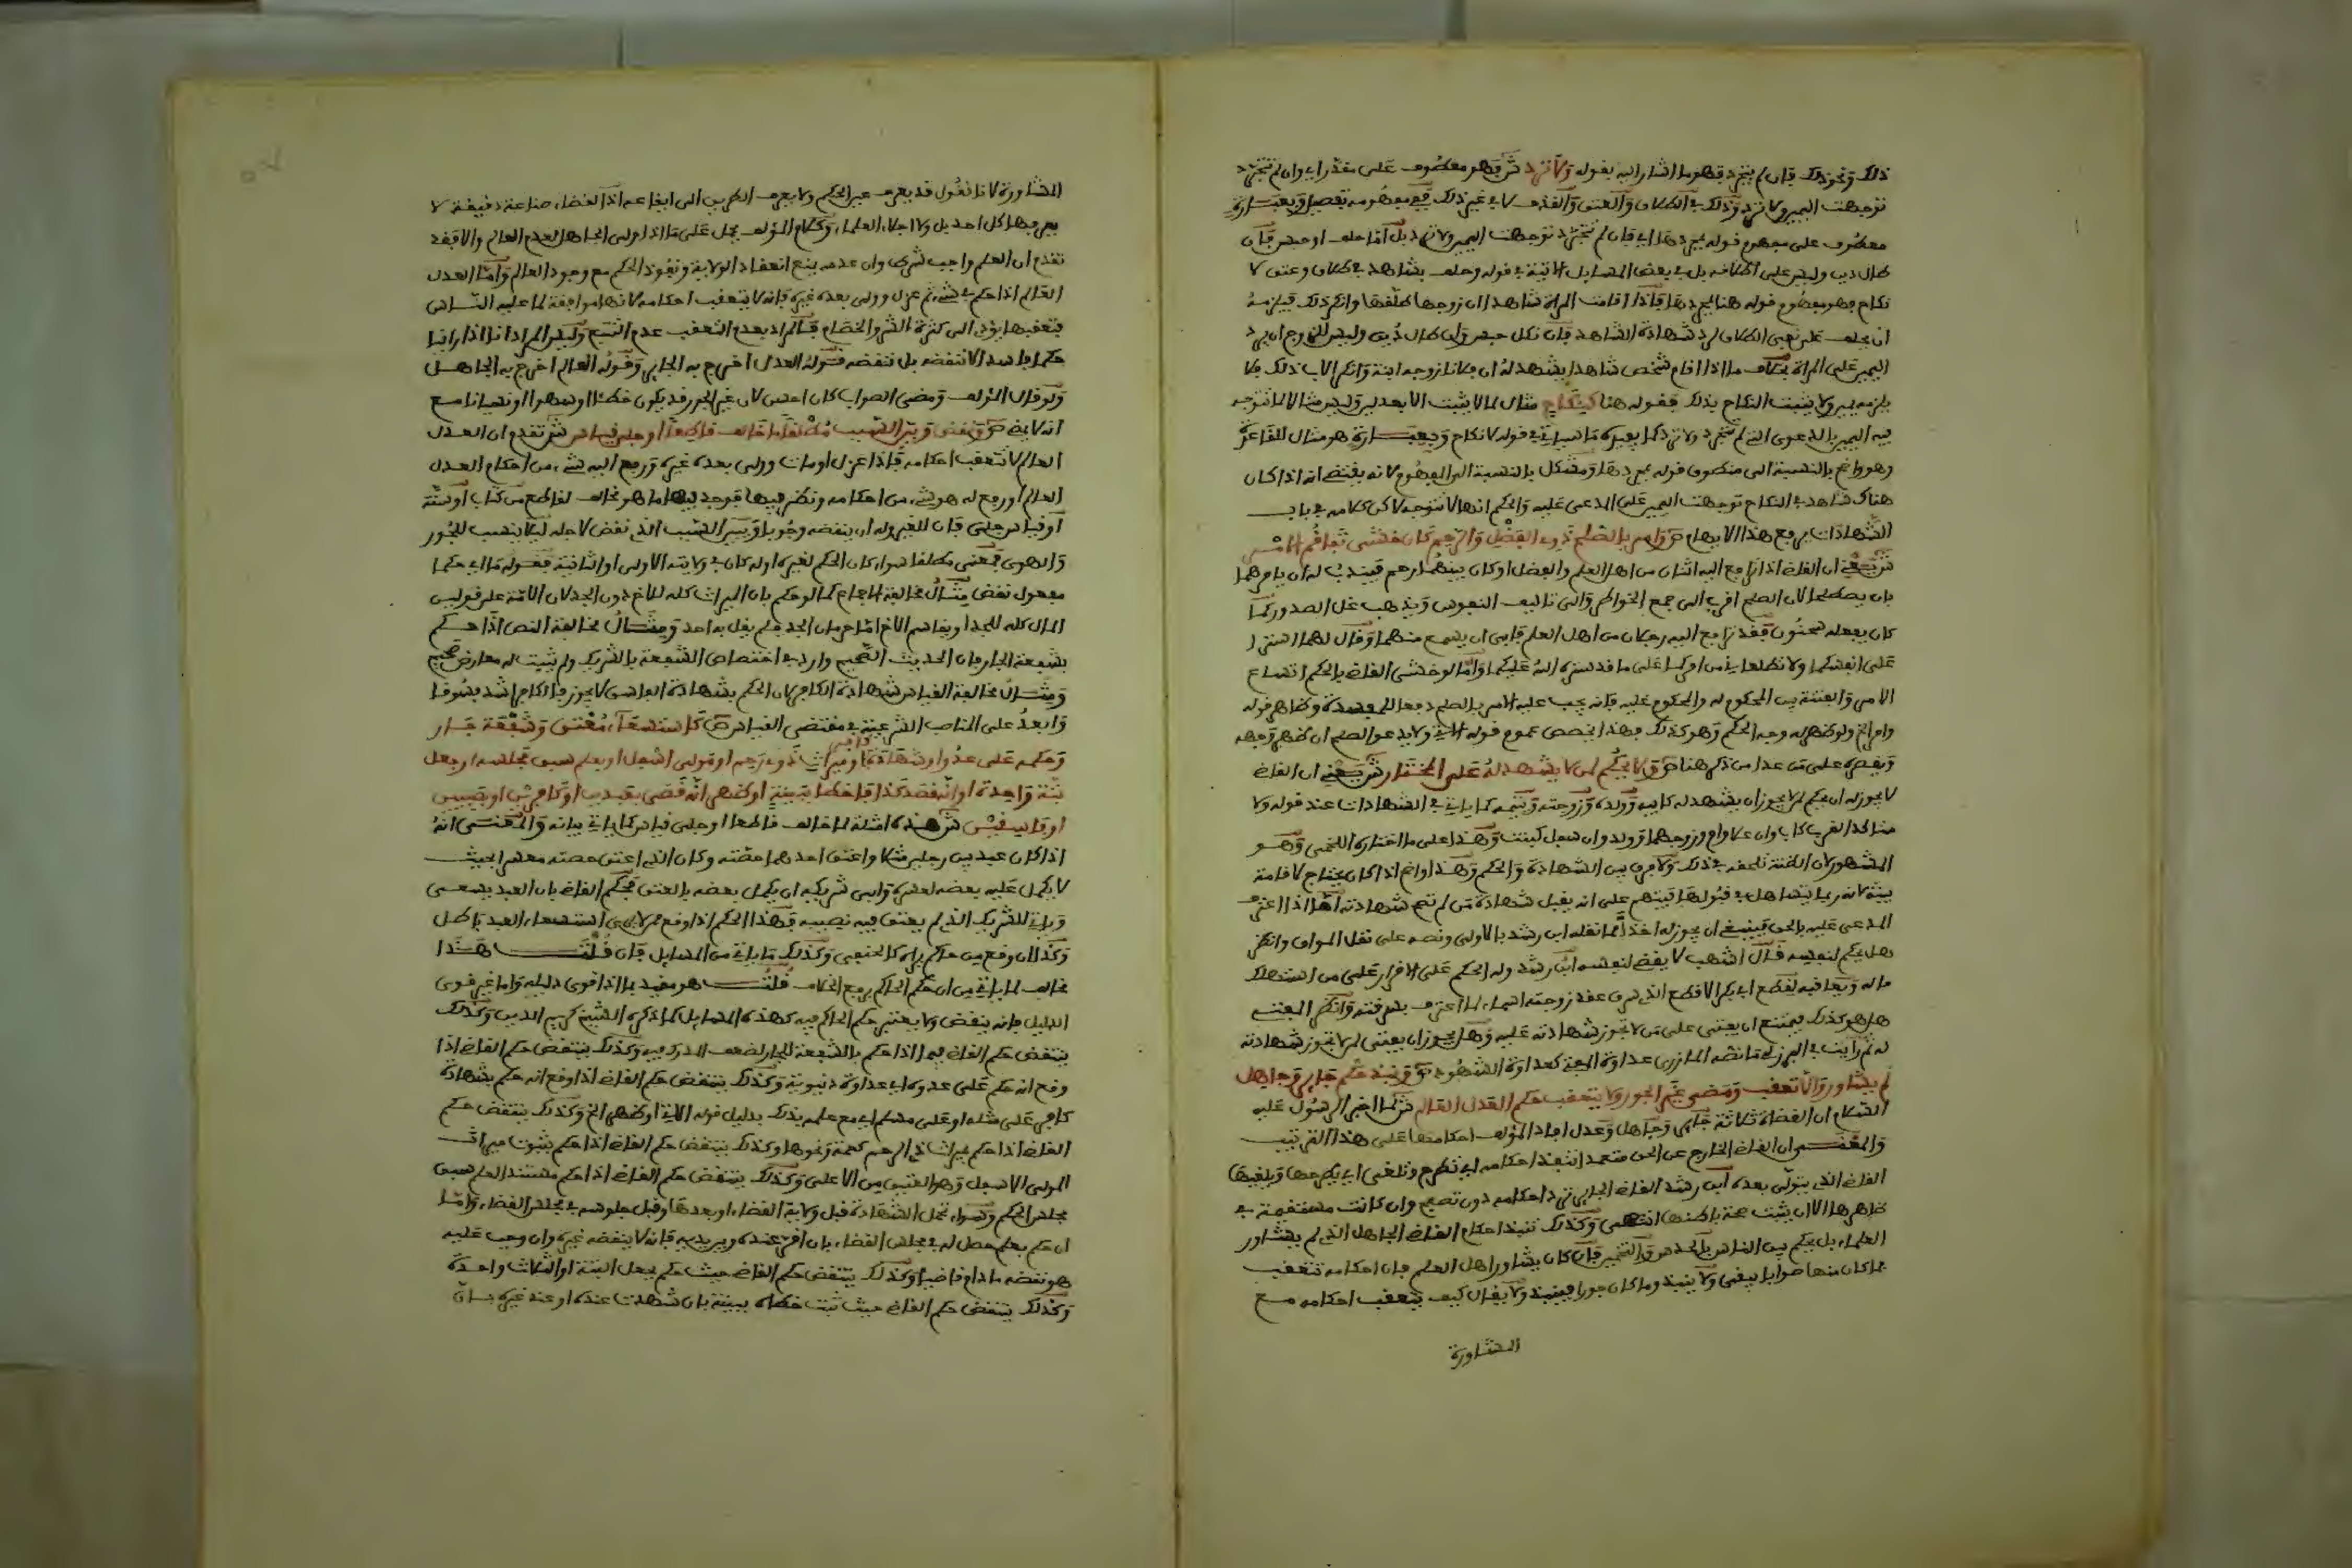 ذلك ونحو ذلك فان لم يتجرد فهو ما اشار اليه بقوله ولا ترد ش فهو معطوف على مقدر اي وان لم تتجرد
توجهت اليمين ولا ترد وذلك في الطلاق والعتق والقذف لا في غير ذلك ففي مفهومه تفصيل وبعبارة
معطوف على مفهوم قوله بمجردها اي فان لم تتجرد توجهت اليمين ولا ترد بل اما حلف او حبس فان
طال دين وليس على اطلاقه بل في بعض المسايل الاتية في قوله وحلف بشاهد في طلاق وعتق لا
نكاح فهو مفهوم قوله هنا بمجردها فاذا اقامت المراة شاهدا ان زوجها طلقها وانكر ذلك فيلزمه
ان يحلف على نفي الطلاق لرد شهادة الشاهد فان نكل حبس وان طال دين وليس للزوج ان يرد
اليمين على المراة بخلاف ما اذا اقام شخص شاهدا يشهد له ان فلانا زوجه ابنته وانكر الاب ذلك فلا
يلزمه يمين ولا يثبت النكاح بذلك فقوله هنا كنكاح مثال لما لا يثبت الا بعدلين وليس مثالا لما تتوجه
فيه اليمين بالدعوى التي لم تتجرد ولا ترد كما يفيده ما سياتي في قوله لا نكاح وبعبارة هو مثال للقاعدة
وهو واضح بالنسبة الى منطوق قوله بمجردها ومشكل بالنسبة الى المفهوم لانه يقتضي انه اذا كان
هناك شاهد في النكاح توجهت اليمين على المدعى عليه والحكم انها لا تتوجه لاكن كلامه في باب
الشهادات يرفع هذا الابهام ص وامر بالصلح ذوي الفضل والرحم كان خشي تفاقم الامر
ش يعني ان القاضي اذا ترافع اليه اثنان من اهل العلم والفضل او كان بينهما رحم فيندب له ان يامرهما
بان يصطلحا لان الصلح اقرب الى جمع الخواطر والى تاليف النفوس ويذهب غل الصدور كما
كان يفعله سحنون فقد ترافع اليه رجلان من اهل العلم فابى ان يسمع منهما وقال لهما استرا
على انفسكما ولا تطلعاني من امركما على ما قد ستره الله عليكما واما لو خشي القاضي بالحكم اتساع
الامر والفتنة بين المحكوم له والمحكوم عليه فانه يجب عليه الامر بالصلح دفعا للمفسدة وظاهر قوله
وامر الخ ولو ظهر له وجه الحكم وهو كذلك فهذا يخصص عموم قوله الاتي ولا يدعو لصلح ان ظهر وجهه
ويقصره على من عدا من ذكر هنا ص ولا يحكم لمن لا يشهد له على المختار ش يعني ان القاضي
لا يجوز له ان يحكم لمن لا يجوز ان يشهد له كابيه وولده وزوجته ويتيمه كما ياتي في الشهادات عند قوله ولا
متاكد القرب كاب وان علا وام وزوجهما وولد وان سفل كبنت وهذا على ما اختاره اللخمي وهو
المشهور لان الظنة تلحقه في ذلك ولا فرق بين الشهادة والحكم وهذا واضح اذا كان يحتاج لاقامة
بينة لانه ربما يتساهل في قبولها فيتهم على انه يقبل شهادة من لم تتم شهادته اما اذا اعترف
المدعى عليه بالحق فينبغي ان يجوز له اخذا مما نقله ابن رشد بالاولى ونصه على نقل المواق وانظر
هل يحكم لنفسه قال اشهب لا يقضي لنفسه ابن رشد وله الحكم على الاقرار على من استهلك
ماله ويعاقبه لقطع ابي بكر الاقطع الذي سرق عقد زوجته اسماء لما اعترف بسرقته وانظر المفتي
هل هو كذلك فيمتنع ان يفتي على من لا تجوز شهادته عليه وهل يجوز ان يفتي لمن لا تجوز شهادته
له ثم رايت في البرزلي ما نصه المازري عداوة المفتي كعداوة الشهود ص ونبذ حكم جاير وجاهل
لم يشاور والا تعقب ومضى غير الجور ولا يتعقب حكم العدل العالم ش لما اخبر الرسول عليه
السلام ان القضاة ثلاثة جاير وجاهل وعدل افاد المؤلف احكامها على هذا الترتيب
والمعنى ان القاضي الخارج عن الحق متعمدا تنبذ احكامه اي تطرح وتلغى اي يطرحها ويلغيها
القاضي الذي يتولى بعده ابن رشد القاضي الجاير ترد احكامه دون تصفح وان كانت مستقيمة في
ظاهرها الا ان يثبت صحة باطنها انتهى وكذلك تنبذ احكام القاضي الجاهل الذي لم يشاور
العلماء بل يحكم بين الناس بالحدس والتخمين فان كان يشاور اهل العلم فان احكامه تتعقب
فما كان منها صوابا بقي ولا ينبذ وما كان جورا فينبذ ولا يقال كيف يتعقب احكامه مع
المشاورة
المشاورة لانا نقول قد يعرف عين الحكم ولا يعرف الطريق الى ايقاعه اذ القضاء صناعة دقيقة لا
يعرفها كل احد بل ولا اجلاء العلماء وكلام المؤلف يحمل على ما اذا ولى الجاهل لعدم العالم والا فقد
تقدم ان العلم واجب شرطي وان عدمه يمنع انعقاد الولاية ونفوذ الحكم مع وجود العالم واما العدل
العالم اذا حكم بشيء ثم عزل وولي بعده غيره فانه لا يتعقب احكامه لانها موافقة لما عليه الناس
فتعقبها يؤدي الى كثرة الشر والخصام فالمراد بعدم التعقب عدم التتبع وليس المراد انا اذا راينا
حكما فاسدا لا ننقضه بل ننقضه فقوله العدل اخرج به الجاير وقوله العالم اخرج به الجاهل
ولو قال المؤلف ومضى الصواب كان احسن لان غير الجور قد يكون خطئا او سهوا او نسيانا مع
انه لا يمضي ص ونقض وبين السبب مطلقا ما خالف قاطعا او جلي قياس ش تقدم ان العدل
العالم لا تتعقب احكامه فاذا عزل او مات وولي بعده غيره ورفع اليه شيء من احكام العدل
العالم او رفع له هو شيء من احكامه ونظر فيها فوجد فيها ما هو مخالف لقاطع من كتاب او سنة
او قياس جلي فان للغير وله ان ينقضه وجوبا ويبين السبب الذي نقض لاجله ليلا ينسب للجور
والهوى فمعنى مطلقا سواء كان الحكم لغيره او له كان في ولايته الاولى او الثانية فقوله ما اي حكما
مفعول نقض مثال مخالفة الاجماع كما لو حكم بان الميراث كله للاخ دون الجد لان الامة على قولين
المال كله للجد او يقاسم الاخ اما حرمان الجد فلم يقل به احد ومثال مخالفة النص اذا حكم
بشفعة الجار فان الحديث الصحيح وارد في اختصاص الشفعة بالشريك ولم يثبت له معارض صحيح
ومثال مخالفة القياس شهادة الكافر لان الحكم بشهادة الفاسق لا يجوز والكافر اشد فسوقا
وابعد على المناصب الشرعية في مقتضى القياس ص كاستسعاء معتق وشفعة جار
وحكم على عدو او شهادة كافر او ميراث ذي رحم او مولى اسفل او بعلم سبق مجلسه او جعل
بتة واحدة او انه قصد كذا فاخطا ببينة او ظهر انه قضى بعبدين او كافرين او صبيين
او فاسقين ش هذه امثلة لما خالف قاطعا او جلي قياس كما ياتي بيانه والمعنى انه
اذا كان عبد بين رجلين مثلا واعتق احدهما حصته وكان الذي اعتق حصته معسرا بحيث
لا يكمل عليه بعضه لعسره وابى شريكه ان يكمل بعضه بالعتق فحكم القاضي بان العبد يسعى
وياتي للشريك الذي لم يعتق فيه نصيبه فهذا الحكم اذا وقع ممن لا يرى استسعاء العبد باطل
وكذا ان وقع من حاكم يراه كالحنفي وكذلك ما ياتي من المسايل فان قلت هذا
مخالف لما ياتي من ان حكم الحاكم يرفع الخلاف قلت هو مقيد بما اذا قوي دليله واما غير قوي
الدليل فانه ينقض ولا يعتبر حكم الحاكم فيه كهذه المسايل كما ذكره الشيخ كريم الدين وكذلك
ينتقض حكم القاضي فيما اذا حكم بالشفعة للجار لضعف المدرك فيه وكذلك ينتقض حكم القاضي اذا
وقع انه حكم على عدوه اي عداوة دنيوية وكذلك ينتقض حكم القاضي اذا وقع انه حكم بشهادة
كافر على مثله او على مسلم اي مع علمه بذلك بدليل قوله الاتي او ظهر الخ وكذلك ينتقض حكم
القاضي اذا حكم بميراث ذي الرحم كعمة ونحوها وكذلك ينتقض حكم القاضي اذا حكم بثبوت ميراث
المولى الاسفل وهو العتيق من الاعلى وكذلك ينتقض حكم القاضي اذا حكم مستندا لعلم سبق
مجلس الحكم وسواء تحمل الشهادة قبل ولاية القضاء او بعدها وقبل جلوسه في مجلس القضاء واما
ان حكم بعلم حصل له في مجلس القضاء بان اقر عنده وبين يديه فانه لا ينقضه غيره وان وجب عليه
هو نقضه ما دام قاضيا وكذلك ينتقض حكم القاضي حيث حكم بجعل البتة او الثلاث واحدة
وكذلك ينتقض حكم القاضي حيث ثبت خطاه ببينة بان شهدت عنده او عند غيره بان